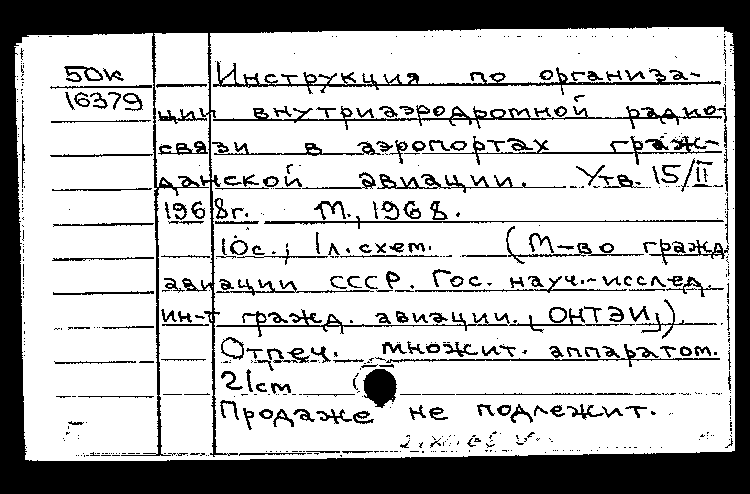 50к Инструкция по организа-
16379 ции внутриаэродромной радио-
связи в аэропортах граж-
данской авиации. Утв. 15/II
1968г. М., 1968.
10с.; 1л.схем. (М-во гражд
авиации СССР. Гос. науч.-исслед.
ин-т гражд. авиации. [ОНТЭИ]).
Отпеч. множит. аппаратом.
21см
Продаже не подлежит.
П